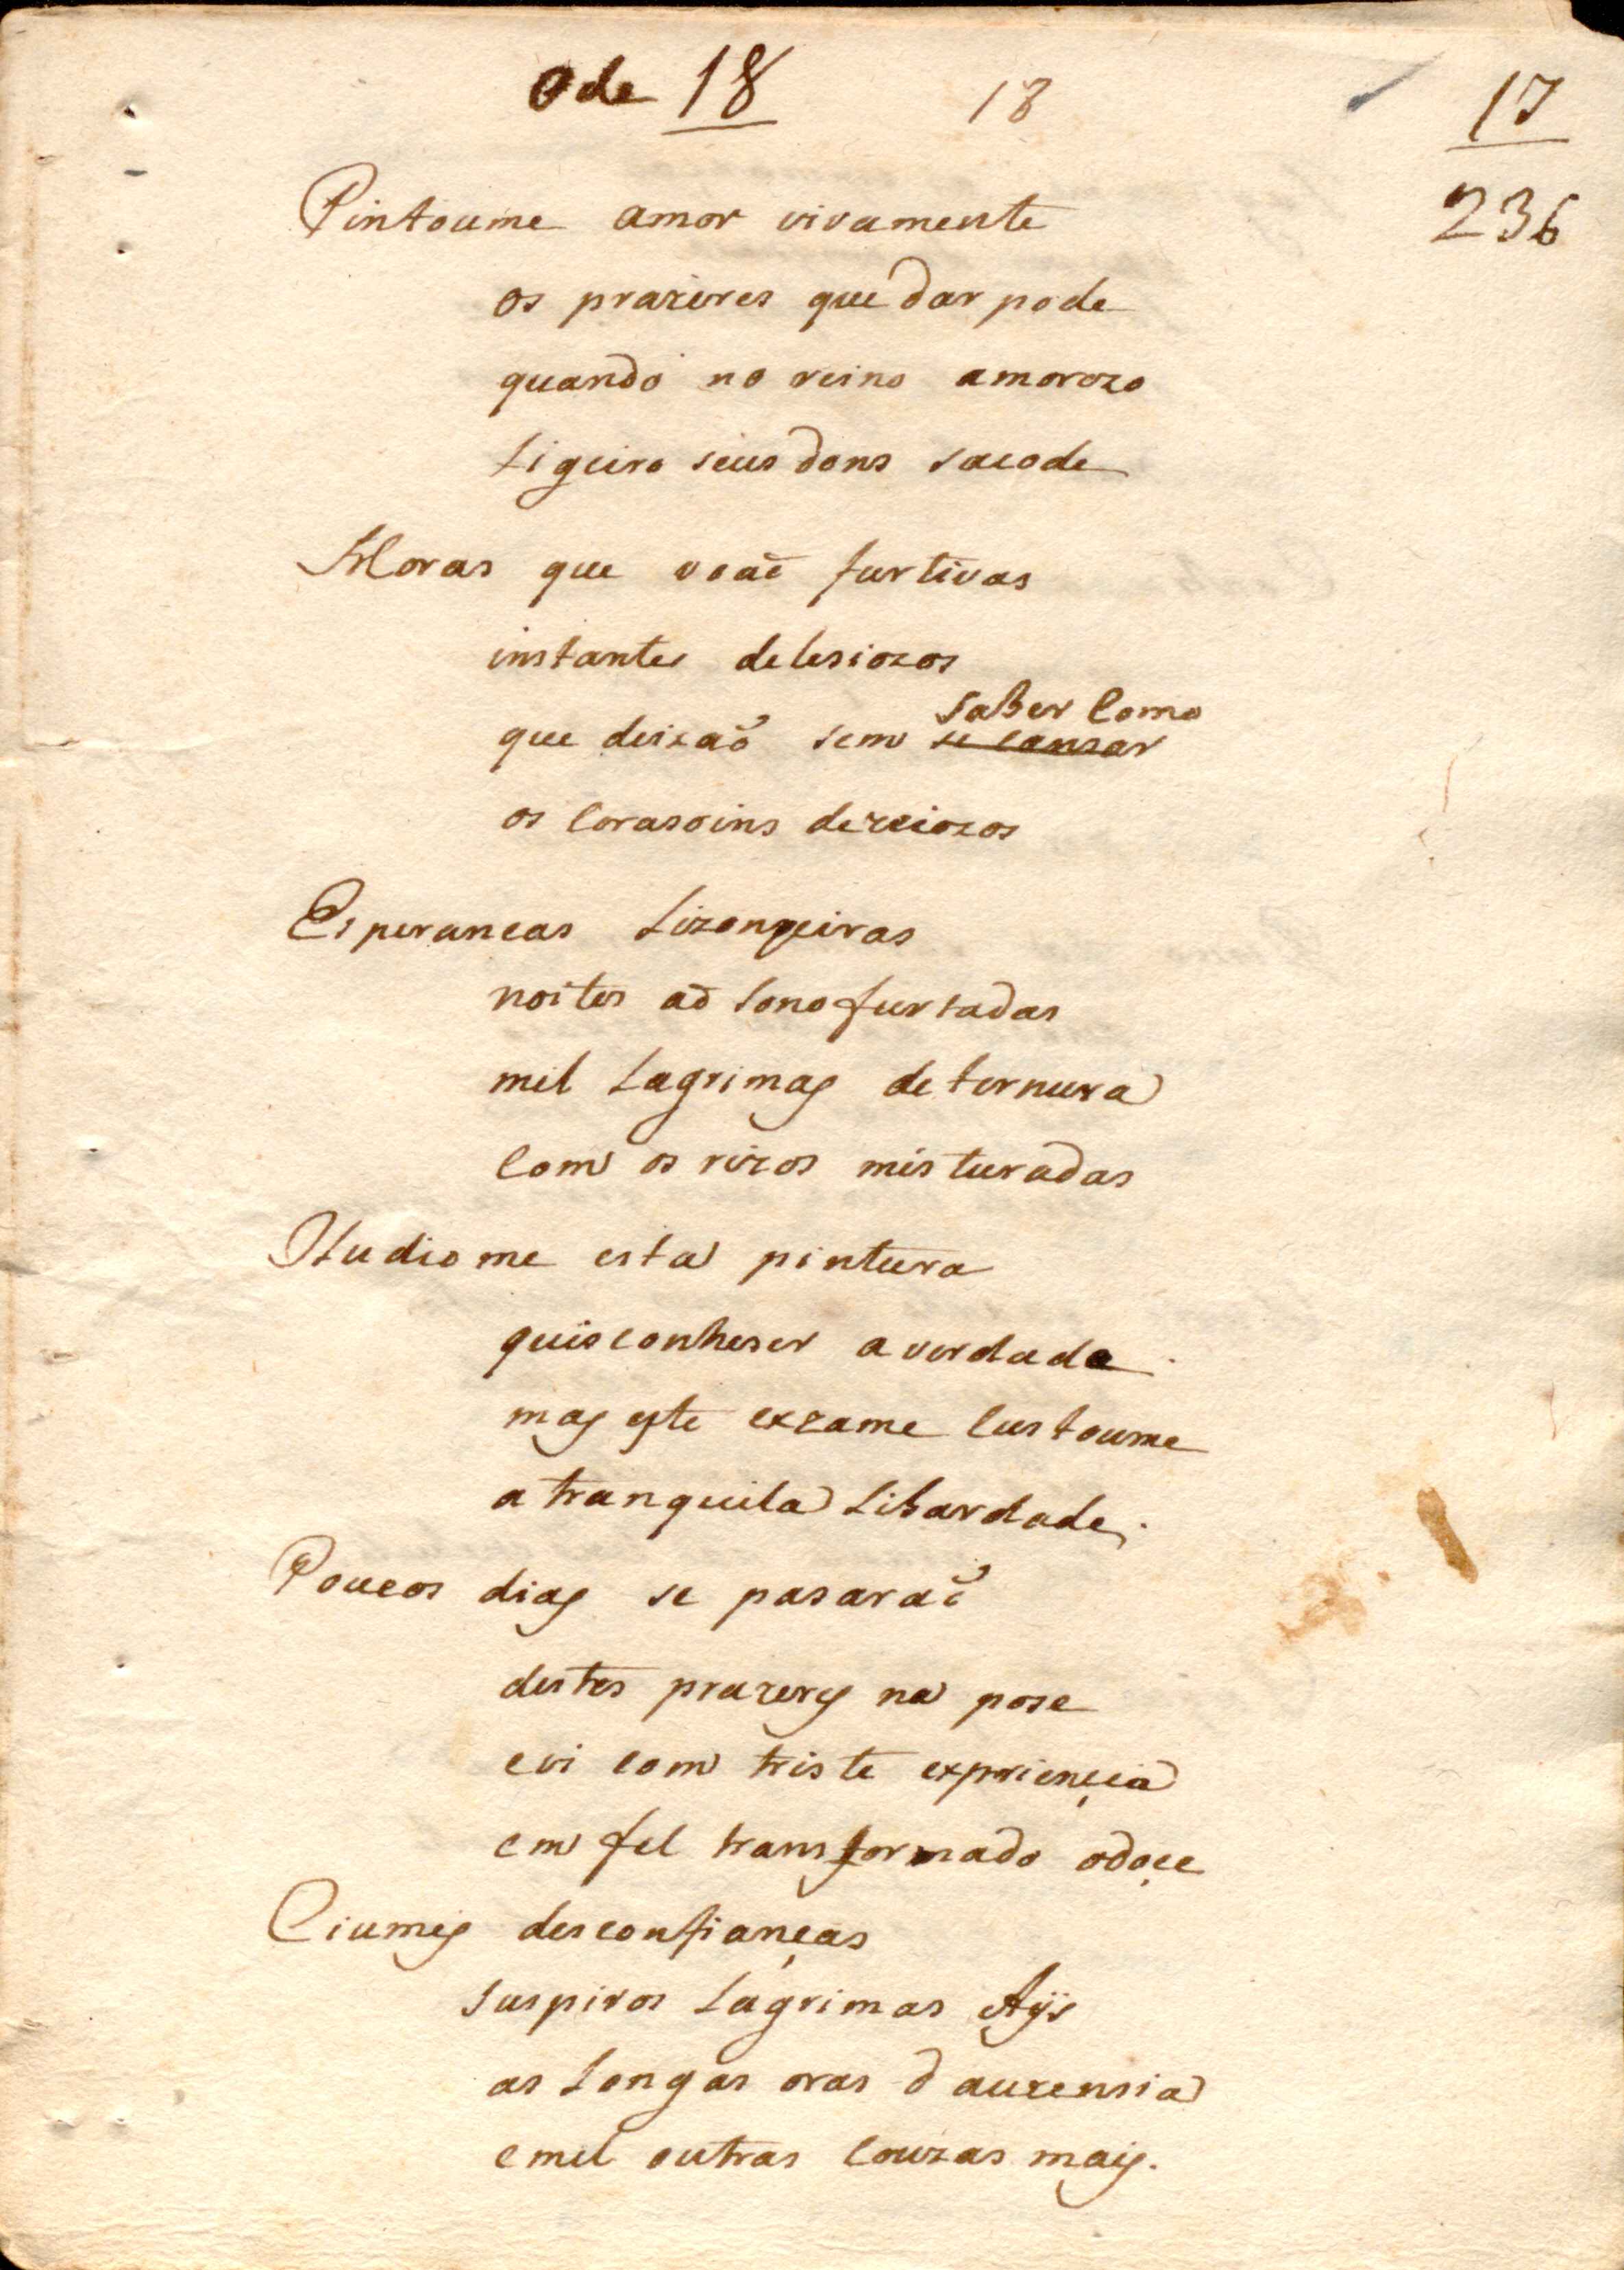 Ode 18 18 17
236
Pintoume amor vivamente
os prazeres que dar pode
quando no reino amorozo
Ligeiro seus dons sacode
Horas que voaõ furtivas
instantes delesiozos
saber Como
que deixaõ sem se cansar
os Corasoins dezeiozos
Esperancas Lizongeiras
noites ao sono furtadas
mil Lagrimas de ternura
Com os rizos misturadas
Iludiome esta pintura
quis conheser a verdade
mas este exzame Custoume
a tranquila Libardade.
Poucos dias se pasaraõ
destes prazeres na pose
e vi com triste expriençia
em fel transformado o doçe
Ciumes desconfianças
suspiros Lagrimas Ays
as Longas oras d auzensia
e mil outras Couzas mais.